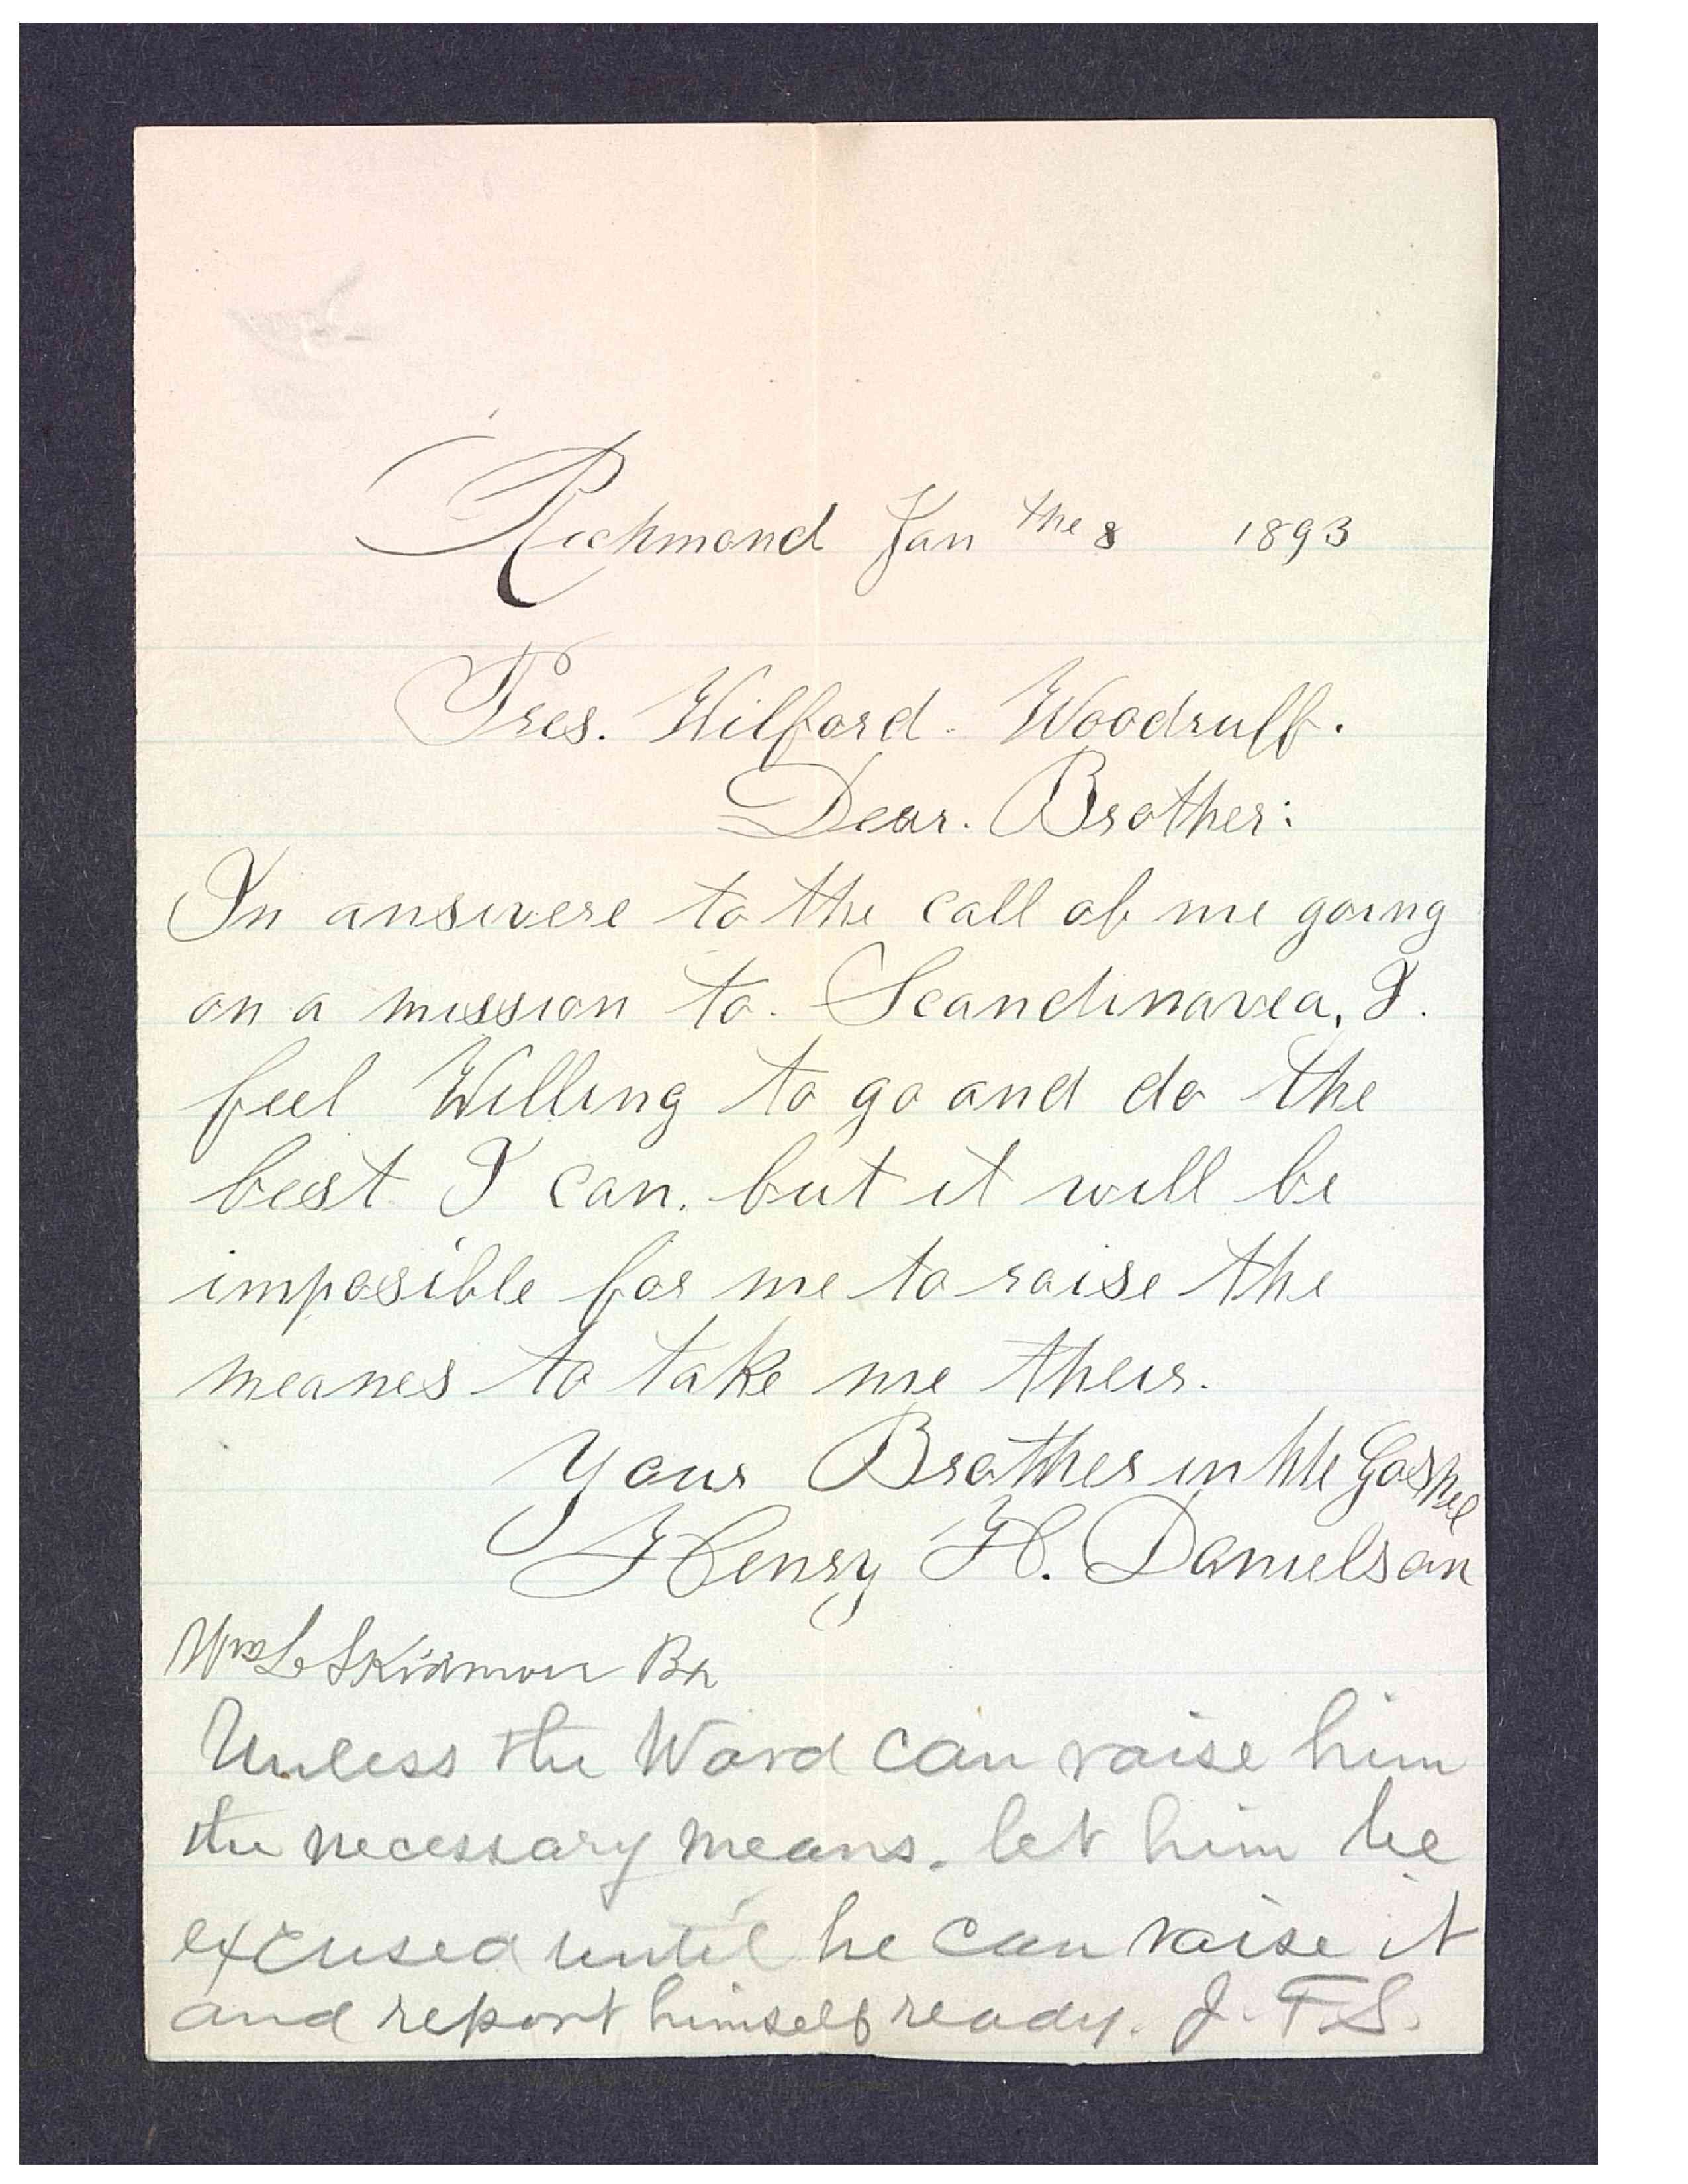 Richmond Jan the 8 1893
Pres. Wilford. Woodruff.
Dear. Brother:
In answere to the call of me going
on a mission to. Scandinavea, I.
feel Willing to go and do the
best I can, but it will be
imposible for me to raise the
meanes to take me their.
Your Brother in the Gospel
Henry H. Danielson
Wm L Skidmore Bp
Unless the Ward can raise him
the necessary means. let him be
excused until he can raise it
and report himself ready. J. F. S.